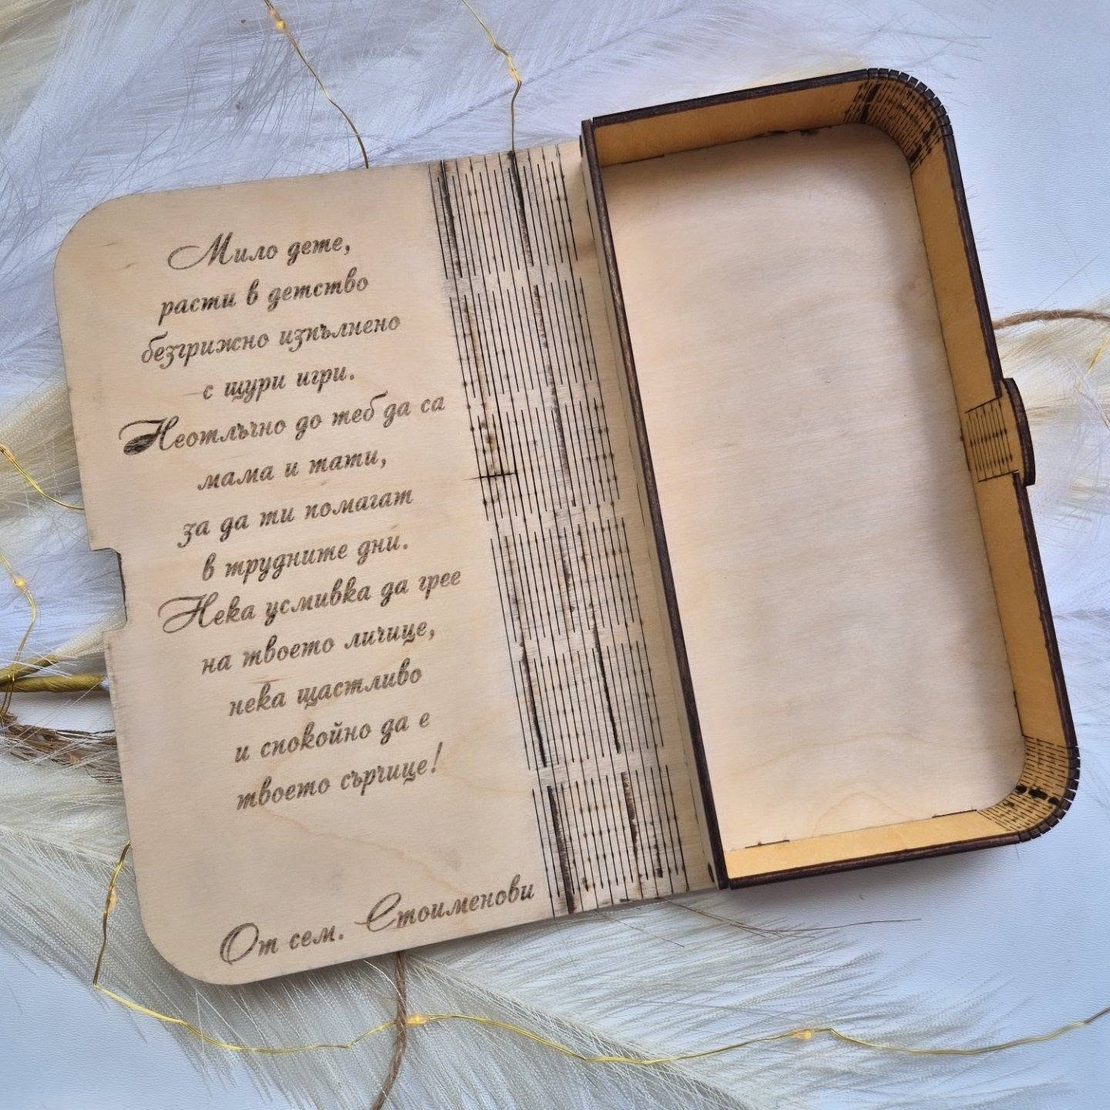 Мило дете,
расти в детство
безгрижно изпълнено
с щури игри.
Неотлъчно до теб да са
мама и тати,
за да ти помагат
в трудните дни.
Нека усмивка да грее
на твоето личице,
нека щастливо
и спокойно да е
твоето сърчице!
От сем. Стоименови